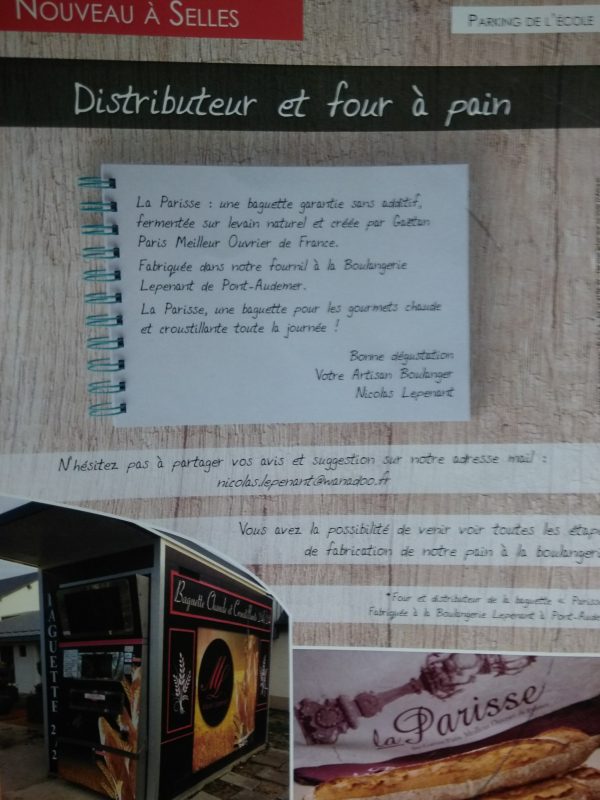 NOUVEAU À SELLES
PARKING DE L'ÉCOLE
Distributeur et four à pain
La Parisse : une baguette garantie sans additif,
fermentée sur levain naturel et créée par Gaëtan
Paris Meilleur Ouvrier de France.
Fabriquée dans notre fournil à la Boulangerie
Lepenant de Pont-Audemer.
La Parisse, une baguette pour les gourmets chaude
et croustillante toute la journée !
Bonne dégustation
Votre Artisan Boulanger
Nicolas Lepenant
N'hésitez pas à partager vos avis et suggestion sur notre adresse mail :
nicolas.lepenant@wanadoo.fr
Vous avez la possibilité de venir voir toutes les étape
de fabrication de notre pain à la boulangeri
*Four et distributeur de la baguette « Parisse
Fabriquée à la Boulangerie Lepenant à Pont-Aude
Baguette Chaude et Croustillante
BAGUETTE
la Parisse